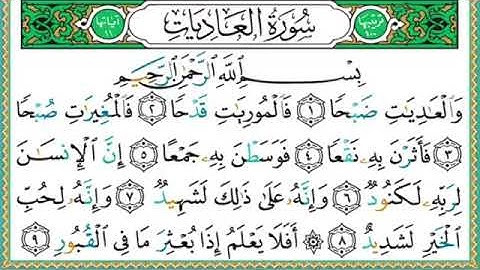 سُورَةُ الْعَادِيَاتِ
ترتيبها ١٠٠
آياتها ١١
بِسْمِ اللَّهِ الرَّحْمَٰنِ الرَّحِيمِ
وَالْعَادِيَاتِ ضَبْحًا ١ فَالْمُورِيَاتِ قَدْحًا ٢ فَالْمُغِيرَاتِ صُبْحًا
٣ فَأَثَرْنَ بِهِ نَقْعًا ٤ فَوَسَطْنَ بِهِ جَمْعًا ٥ إِنَّ الْإِنْسَانَ
لِرَبِّهِ لَكَنُودٌ ٦ وَإِنَّهُ عَلَىٰ ذَٰلِكَ لَشَهِيدٌ ٧ وَإِنَّهُ لِحُبِّ
الْخَيْرِ لَشَدِيدٌ ٨ ۞ أَفَلَا يَعْلَمُ إِذَا بُعْثِرَ مَا فِي الْقُبُورِ ٩